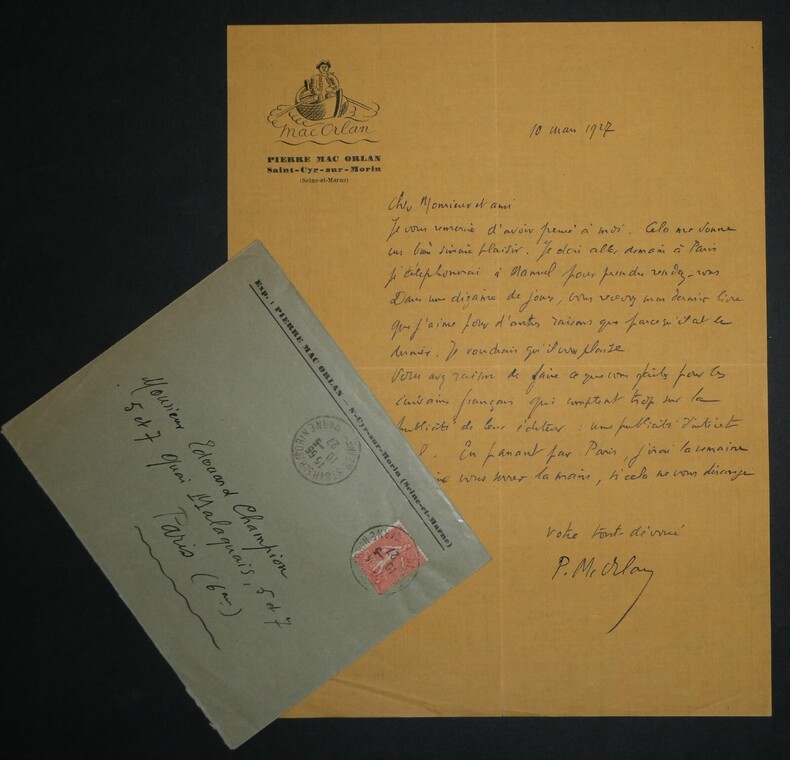 Mac Orlan
PIERRE MAC ORLAN
Saint-Cyr-sur-Morin
(Seine-et-Marne)
10 mars 1927
Cher Monsieur et ami
Je vous remercie d'avoir pensé à moi. Cela me donne
un bien sincère plaisir. Je dois aller demain à Paris
je téléphonerai à Manuel pour prendre rendez-vous
Dans une dizaine de jours, vous recevrez mon dernier livre
que j'aime pour d'autres raisons que parce qu'il est le
dernier. Je voudrais qu'il vous plaise
Vous avez raison de faire ce que vous faites pour les
écrivains français qui comptent trop sur la
publicité de leur éditeur : une publicité d'intérêt
En passant par Paris, j'irai la semaine
vous serrer la main, si cela ne vous dérange
votre tout dévoué
P. Mc Orlan
Exp. : PIERRE MAC ORLAN - S-Cyr-sur-Morin (Seine-et-Marne)
Monsieur Edouard Champion
5 et 7 quai Malaquais, 5 et 7
Paris (6em)